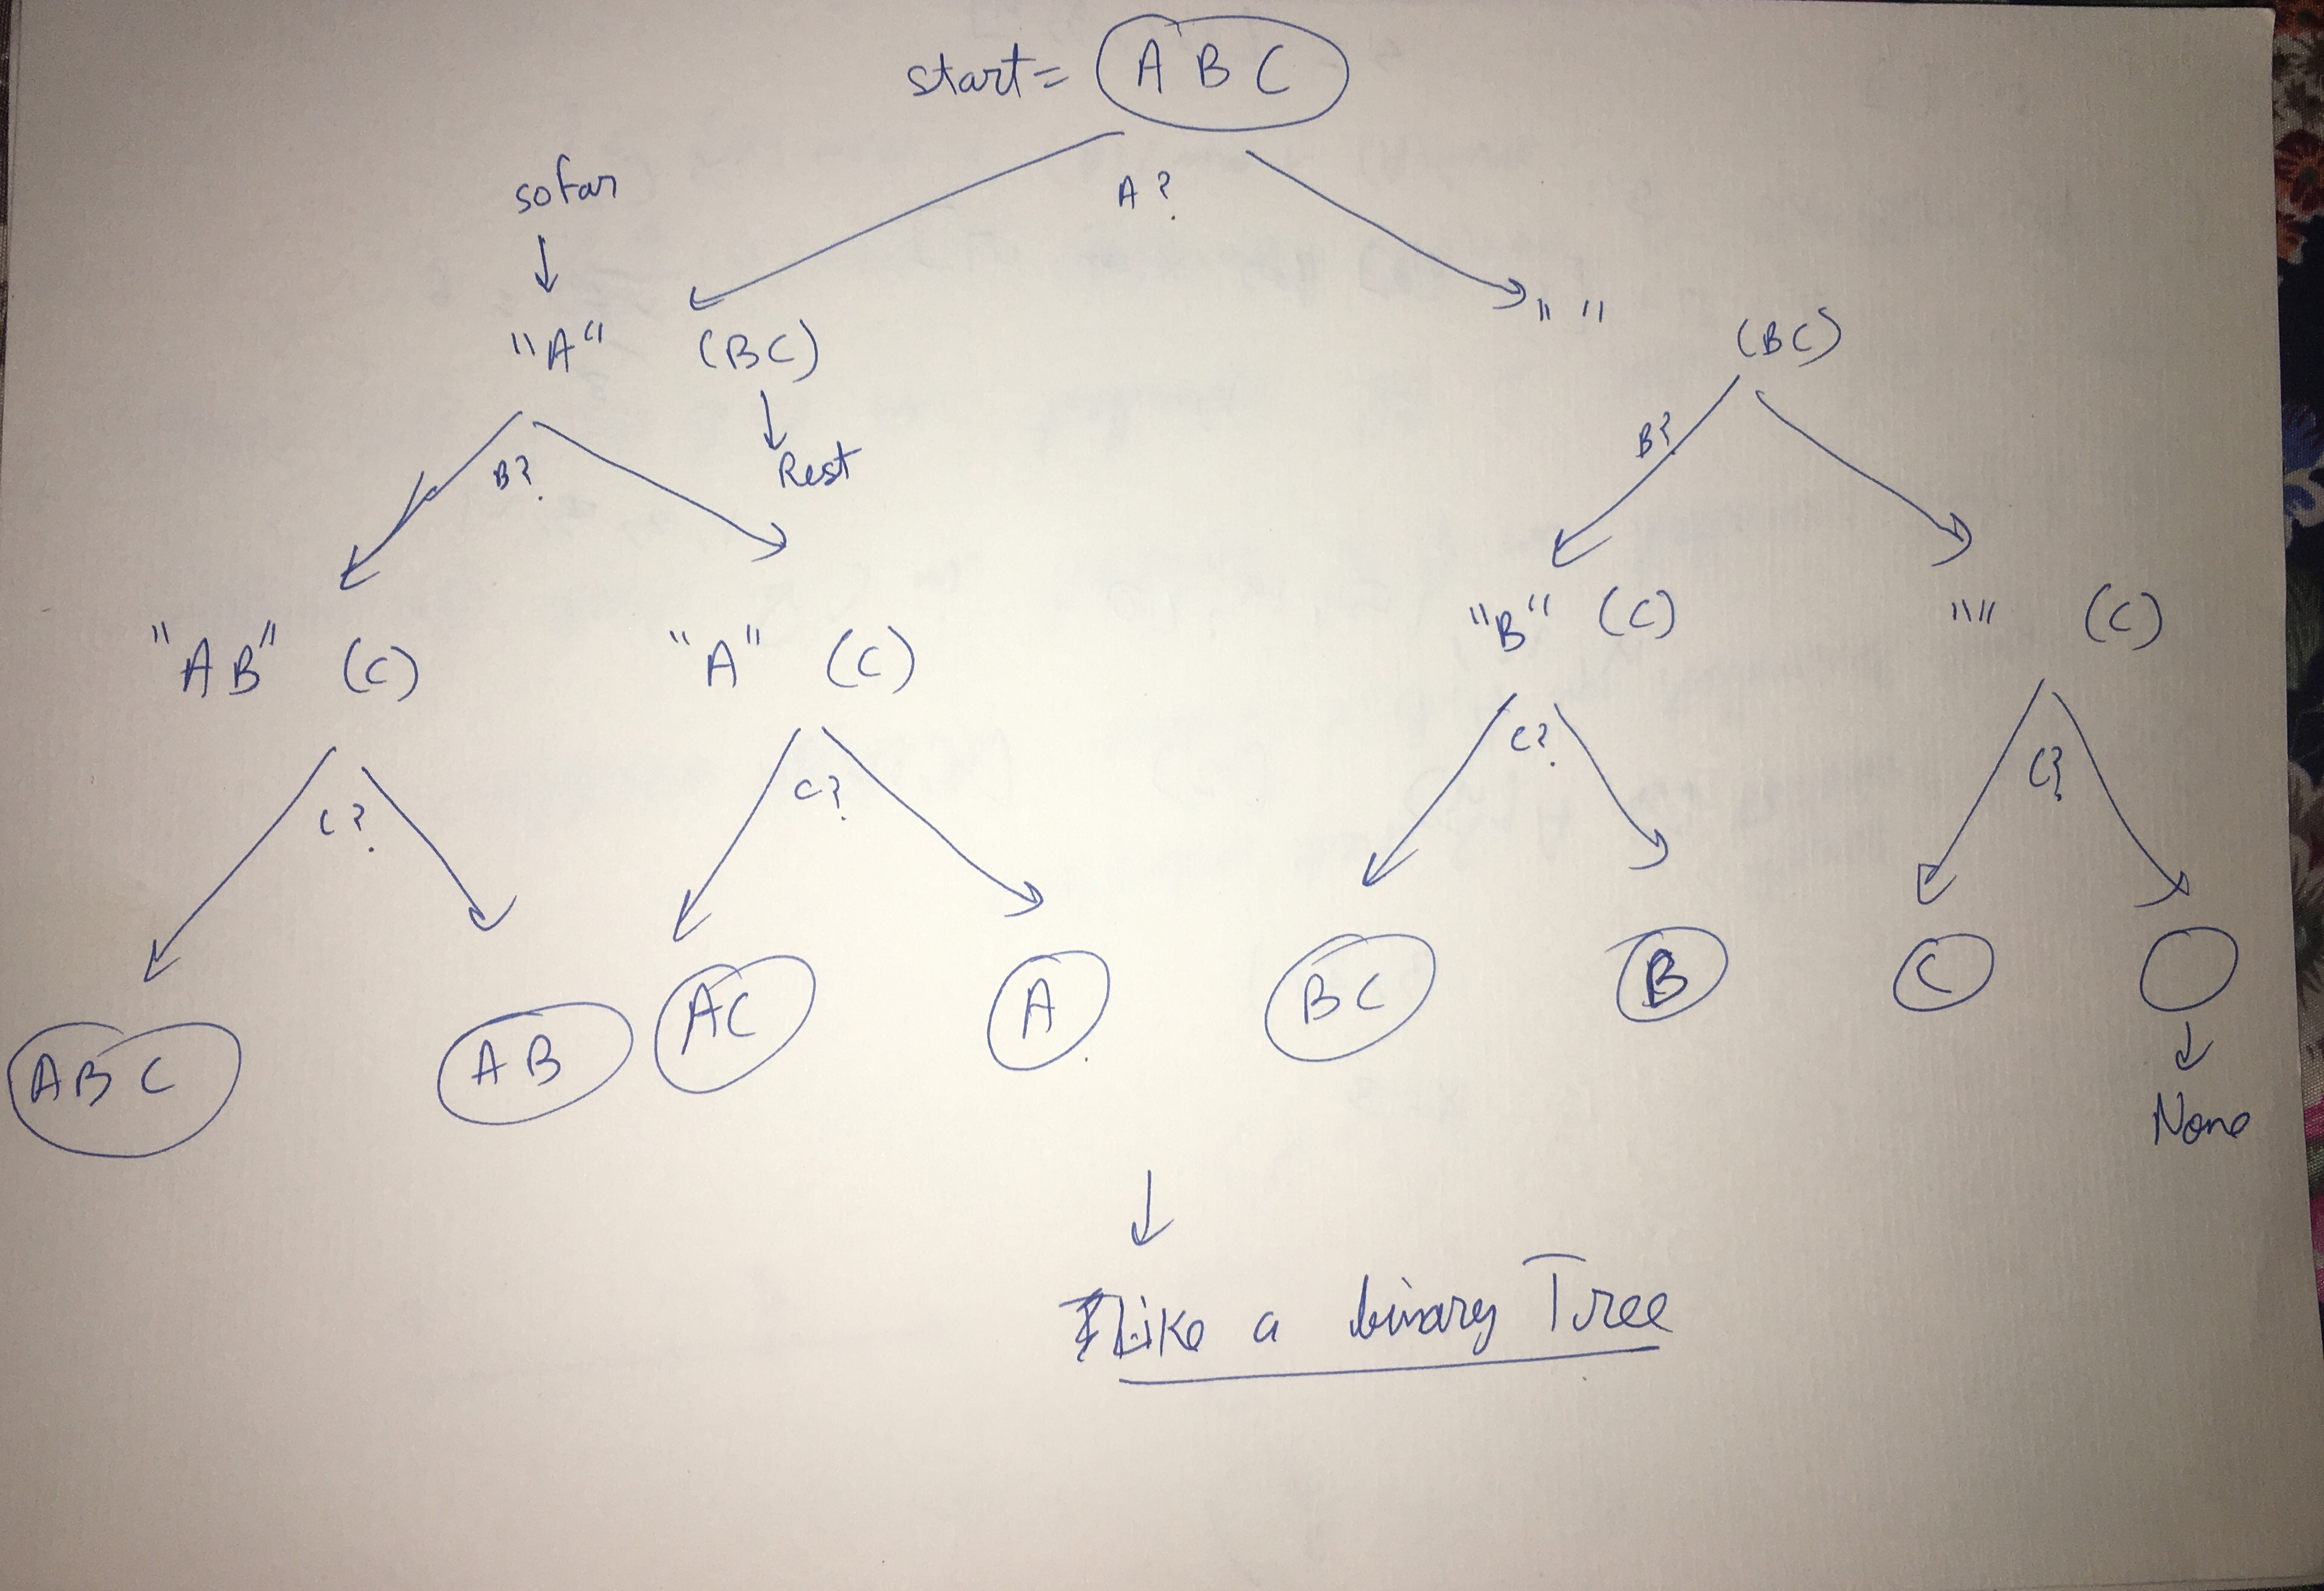 start = A B C
sofar
A ?
"A" (BC)
" " (BC)
Rest
B?
B?
"AB" (C)
"A" (C)
"B" (C)
"" (C)
C?
C?
C?
C?
ABC
AB
AC
A
BC
B
C
None
Like a binary Tree